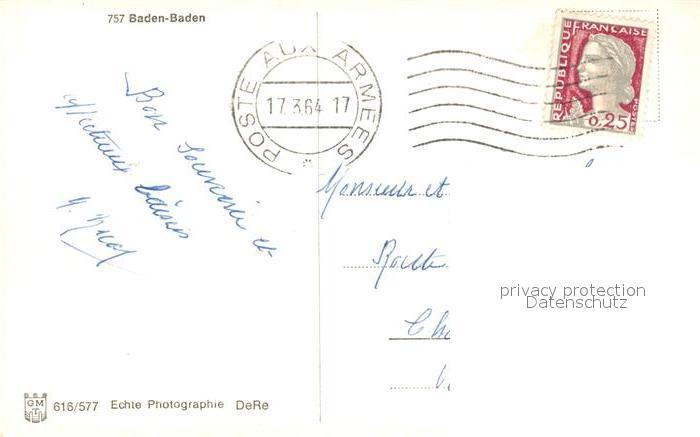 757 Baden-Baden
POSTE AUX ARMEES
17. 3.64 17
REPUBLIQUE FRANÇAISE
POSTES
0,25
Bon souvenir et
affectueux baisers
Monsieur et
Route
privacy protection
Datenschutz
GM
616/577 Echte Photographie DeRe